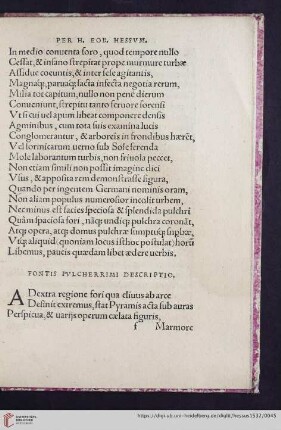 PER H. EOB. HESSVM.
In medio conuenta foro, quod tempore nullo
Cessat, & insano strepitat prope murmure turbæ
Assiduè coeuntis, & inter sele agitantis,
Magnaq́;, paruaq́; facta infecta negotia rerum,
Millia tot capitum, nullo non penè dierum
Conueniunt, strepitu tanto feruore forensi
Vt si cui uel apum libeat componere densis
Agminibus, cum tota suis examina lucis
Conglomerantur, & arboreis in frondibus hærẽt,
Vel formicarum uerno sub Sole serenda
Mole laborantum turbis, non friuola pecces,
Non etiam simili non possit imagine dici
Visus, & apposita rem demonstrasse figura,
Quando per ingentem Germani nominis oram,
Non aliam populus numerosior incolit urbem,
Nec minus est facies speciosa & splendida pulchri
Quàm spaciosa fori, nãq; undiq; pulchra coronãt,
Atq; opera, atq; domus pulchræ sumptuq́; supbæ,
Vtq́; aliquid (quoniam locus isthoc postulat) horũ
Libemus, paucis quædam libet ædere uerbis.
FONTIS PVLCHERRIMI DESCRIPTIO.
A Dextra regione fori qua cliuus ab arce
Desinit extremus, stat Pyramis acta sub auras
Perspicua, & uarijs operum cælata figuris,
f Marmore
https://digi.ub.uni-heidelberg.de/diglit/hessus1532/0045